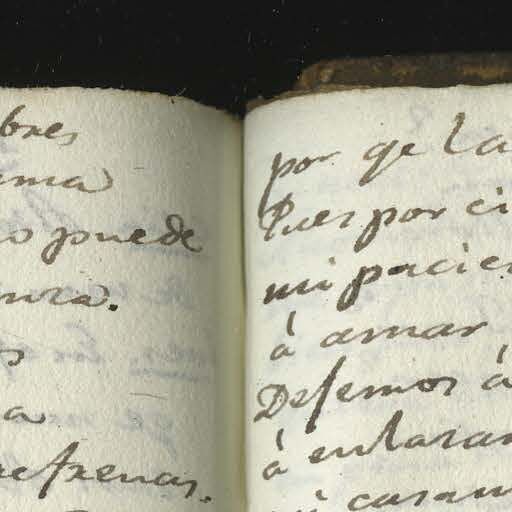 bres
ama
o puede
nura.
s
a
refrenar.
por qe la
Pues por ci
mi pacien
á amar
Defemos á
á enlazar
casam